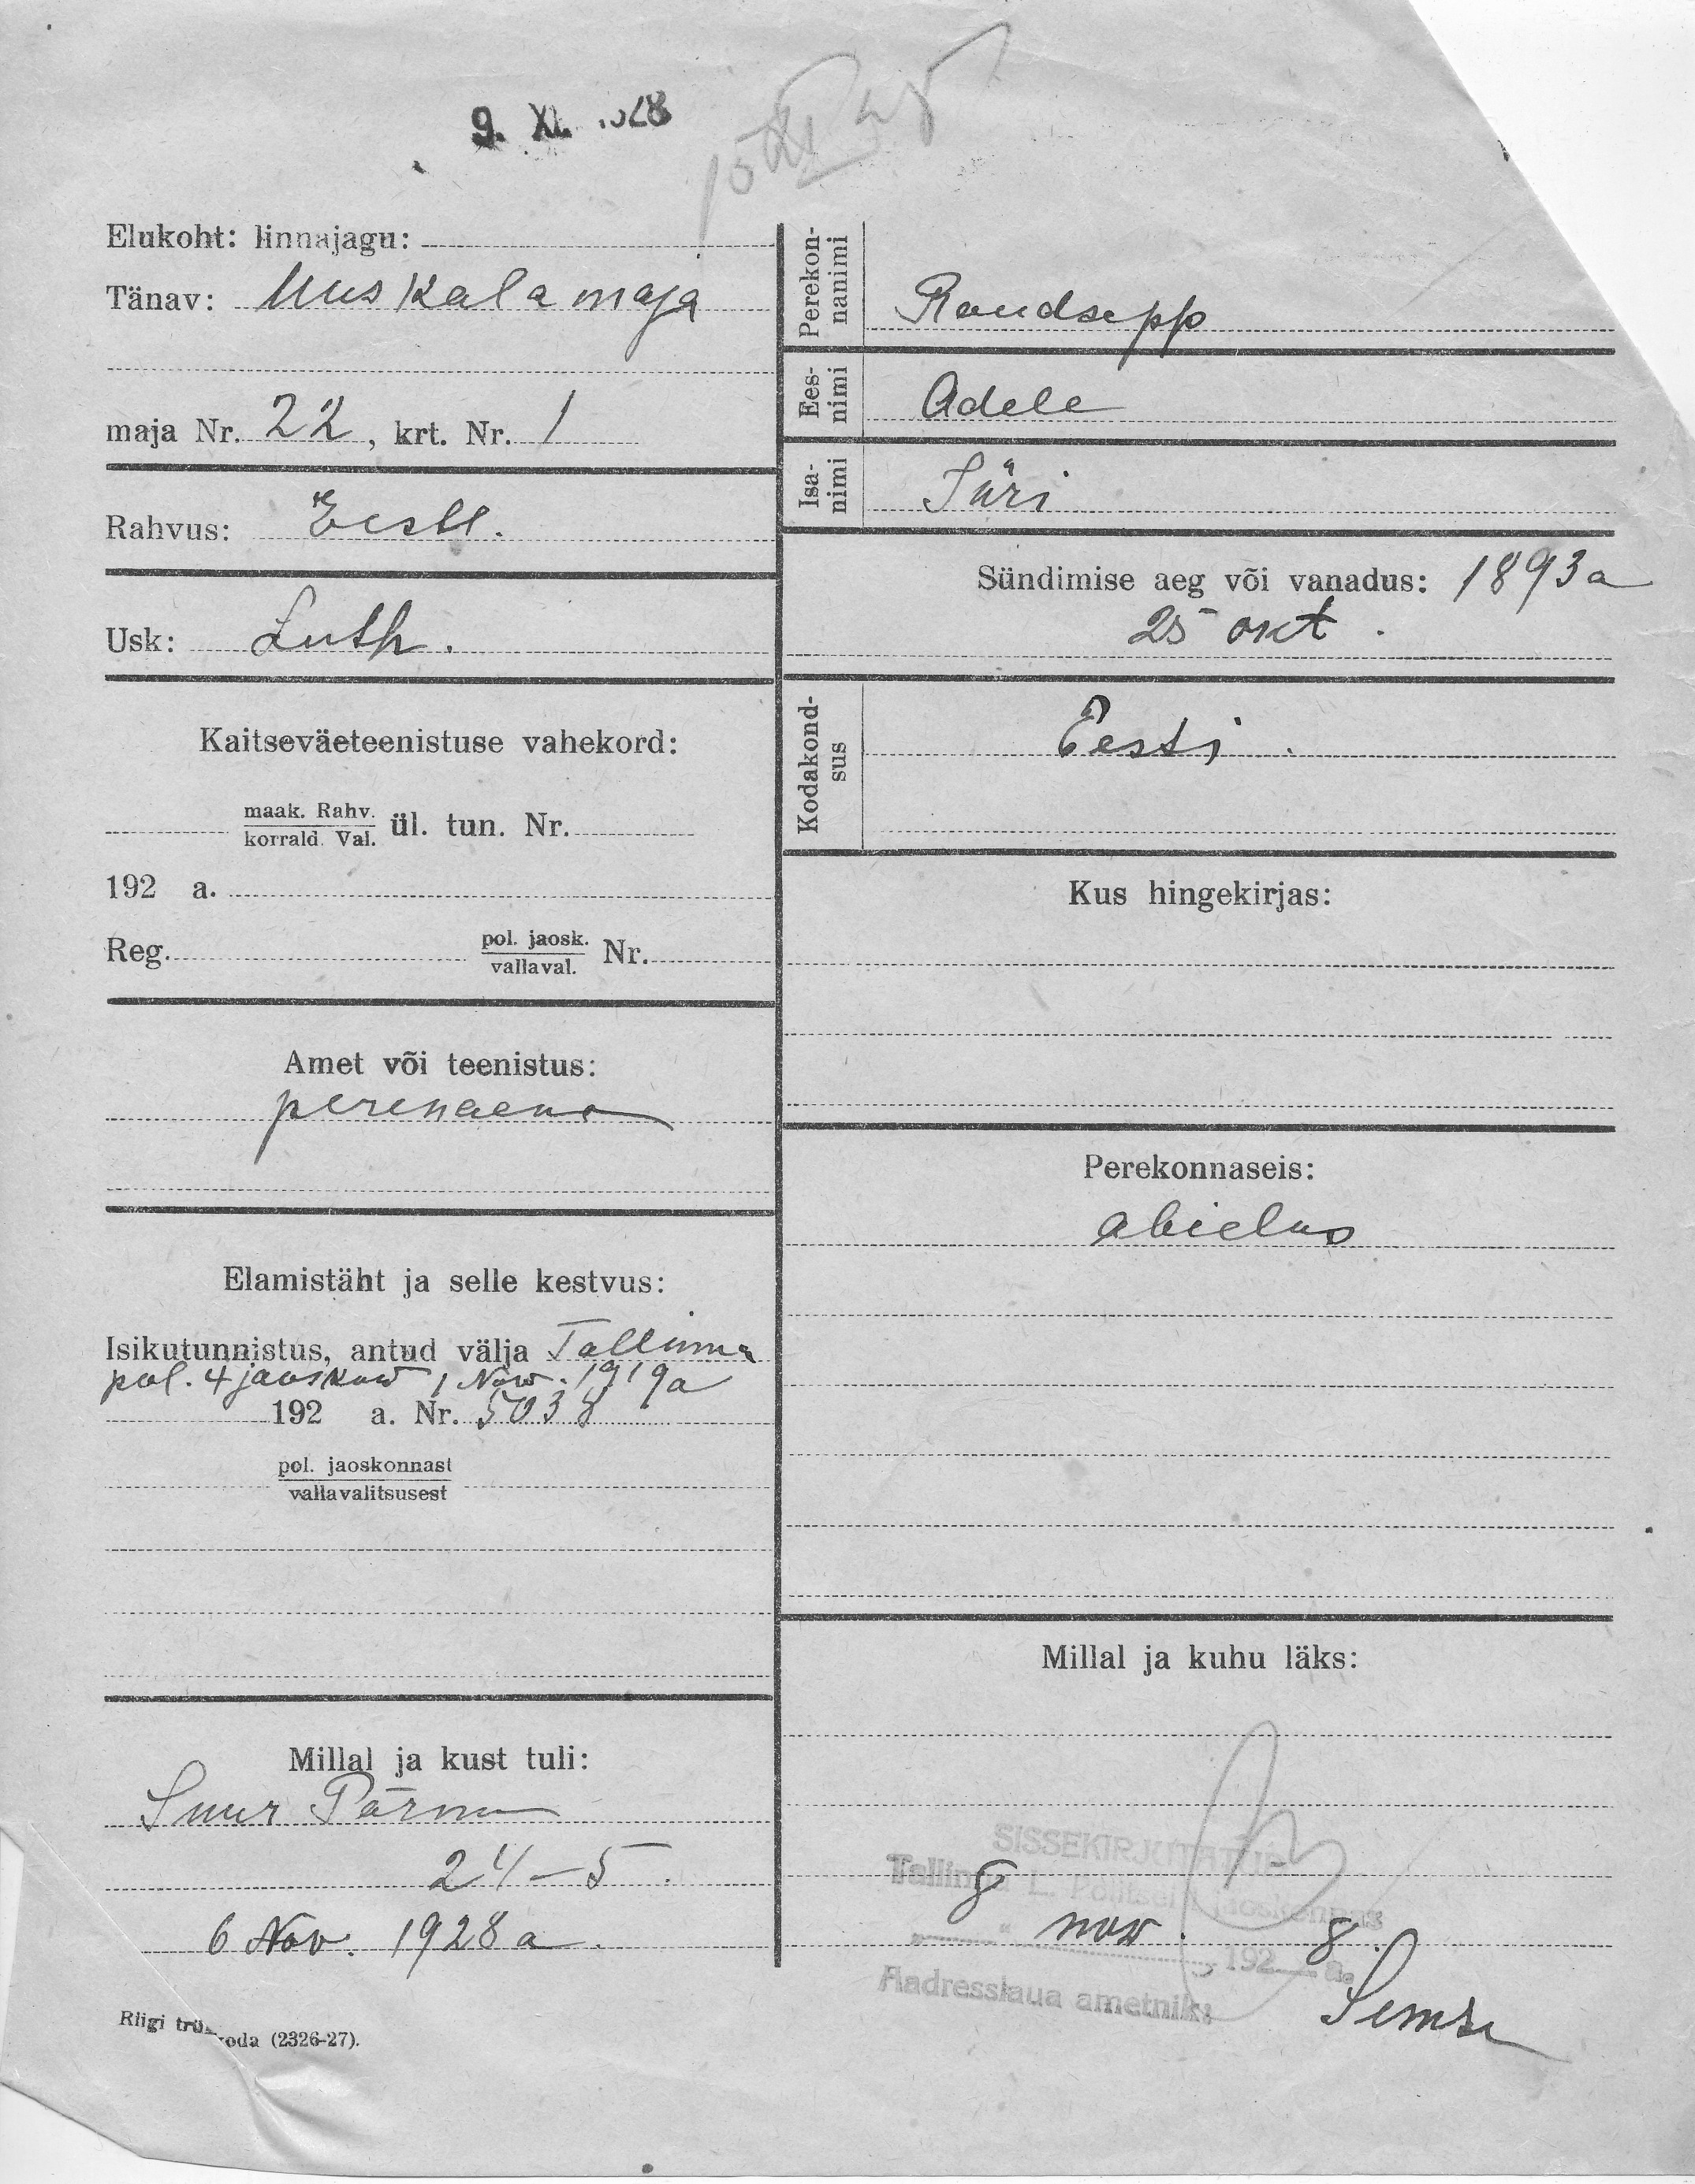 9. XI. 1928
Elukoht: linnajagu:
Tänav: Uus Kalamaja
maja Nr. 22, krt. Nr. 1
Rahvus: Eesti.
Usk: Luth.
Kaitseväeteenistuse vahekord:
maak. Rahv.
korrald. Val. ül. tun. Nr.
192 a.
Reg. pol. jaosk. Nr.
vallaval.
Amet või teenistus:
perenaene
Elamistäht ja selle kestvus:
Isikutunnistus, antud välja Tallinna
pol. 4 jaoskond 1 Now. 1919a
192 a. Nr. 5038
pol. jaoskonnast
vallavalitsusest
Millal ja kust tuli:
Suur Pärnu
24-5.
6 Nov. 1928 a.
Riigi trükikoda (2326-27).
Perekon-
nanimi
Raudsepp
Ees-
nimi
Adele
Isa-
nimi
Jüri
Sündimise aeg või vanadus: 1893a
25 okt.
Kodakond-
sus
Eesti.
Kus hingekirjas:
Perekonnaseis:
abielus
Millal ja kuhu läks:
SISSEKIRJUTATUD
Tallinna L. Politsei jaoskonnas
8 now. 1928 a.
Aadresslaua ametnik: